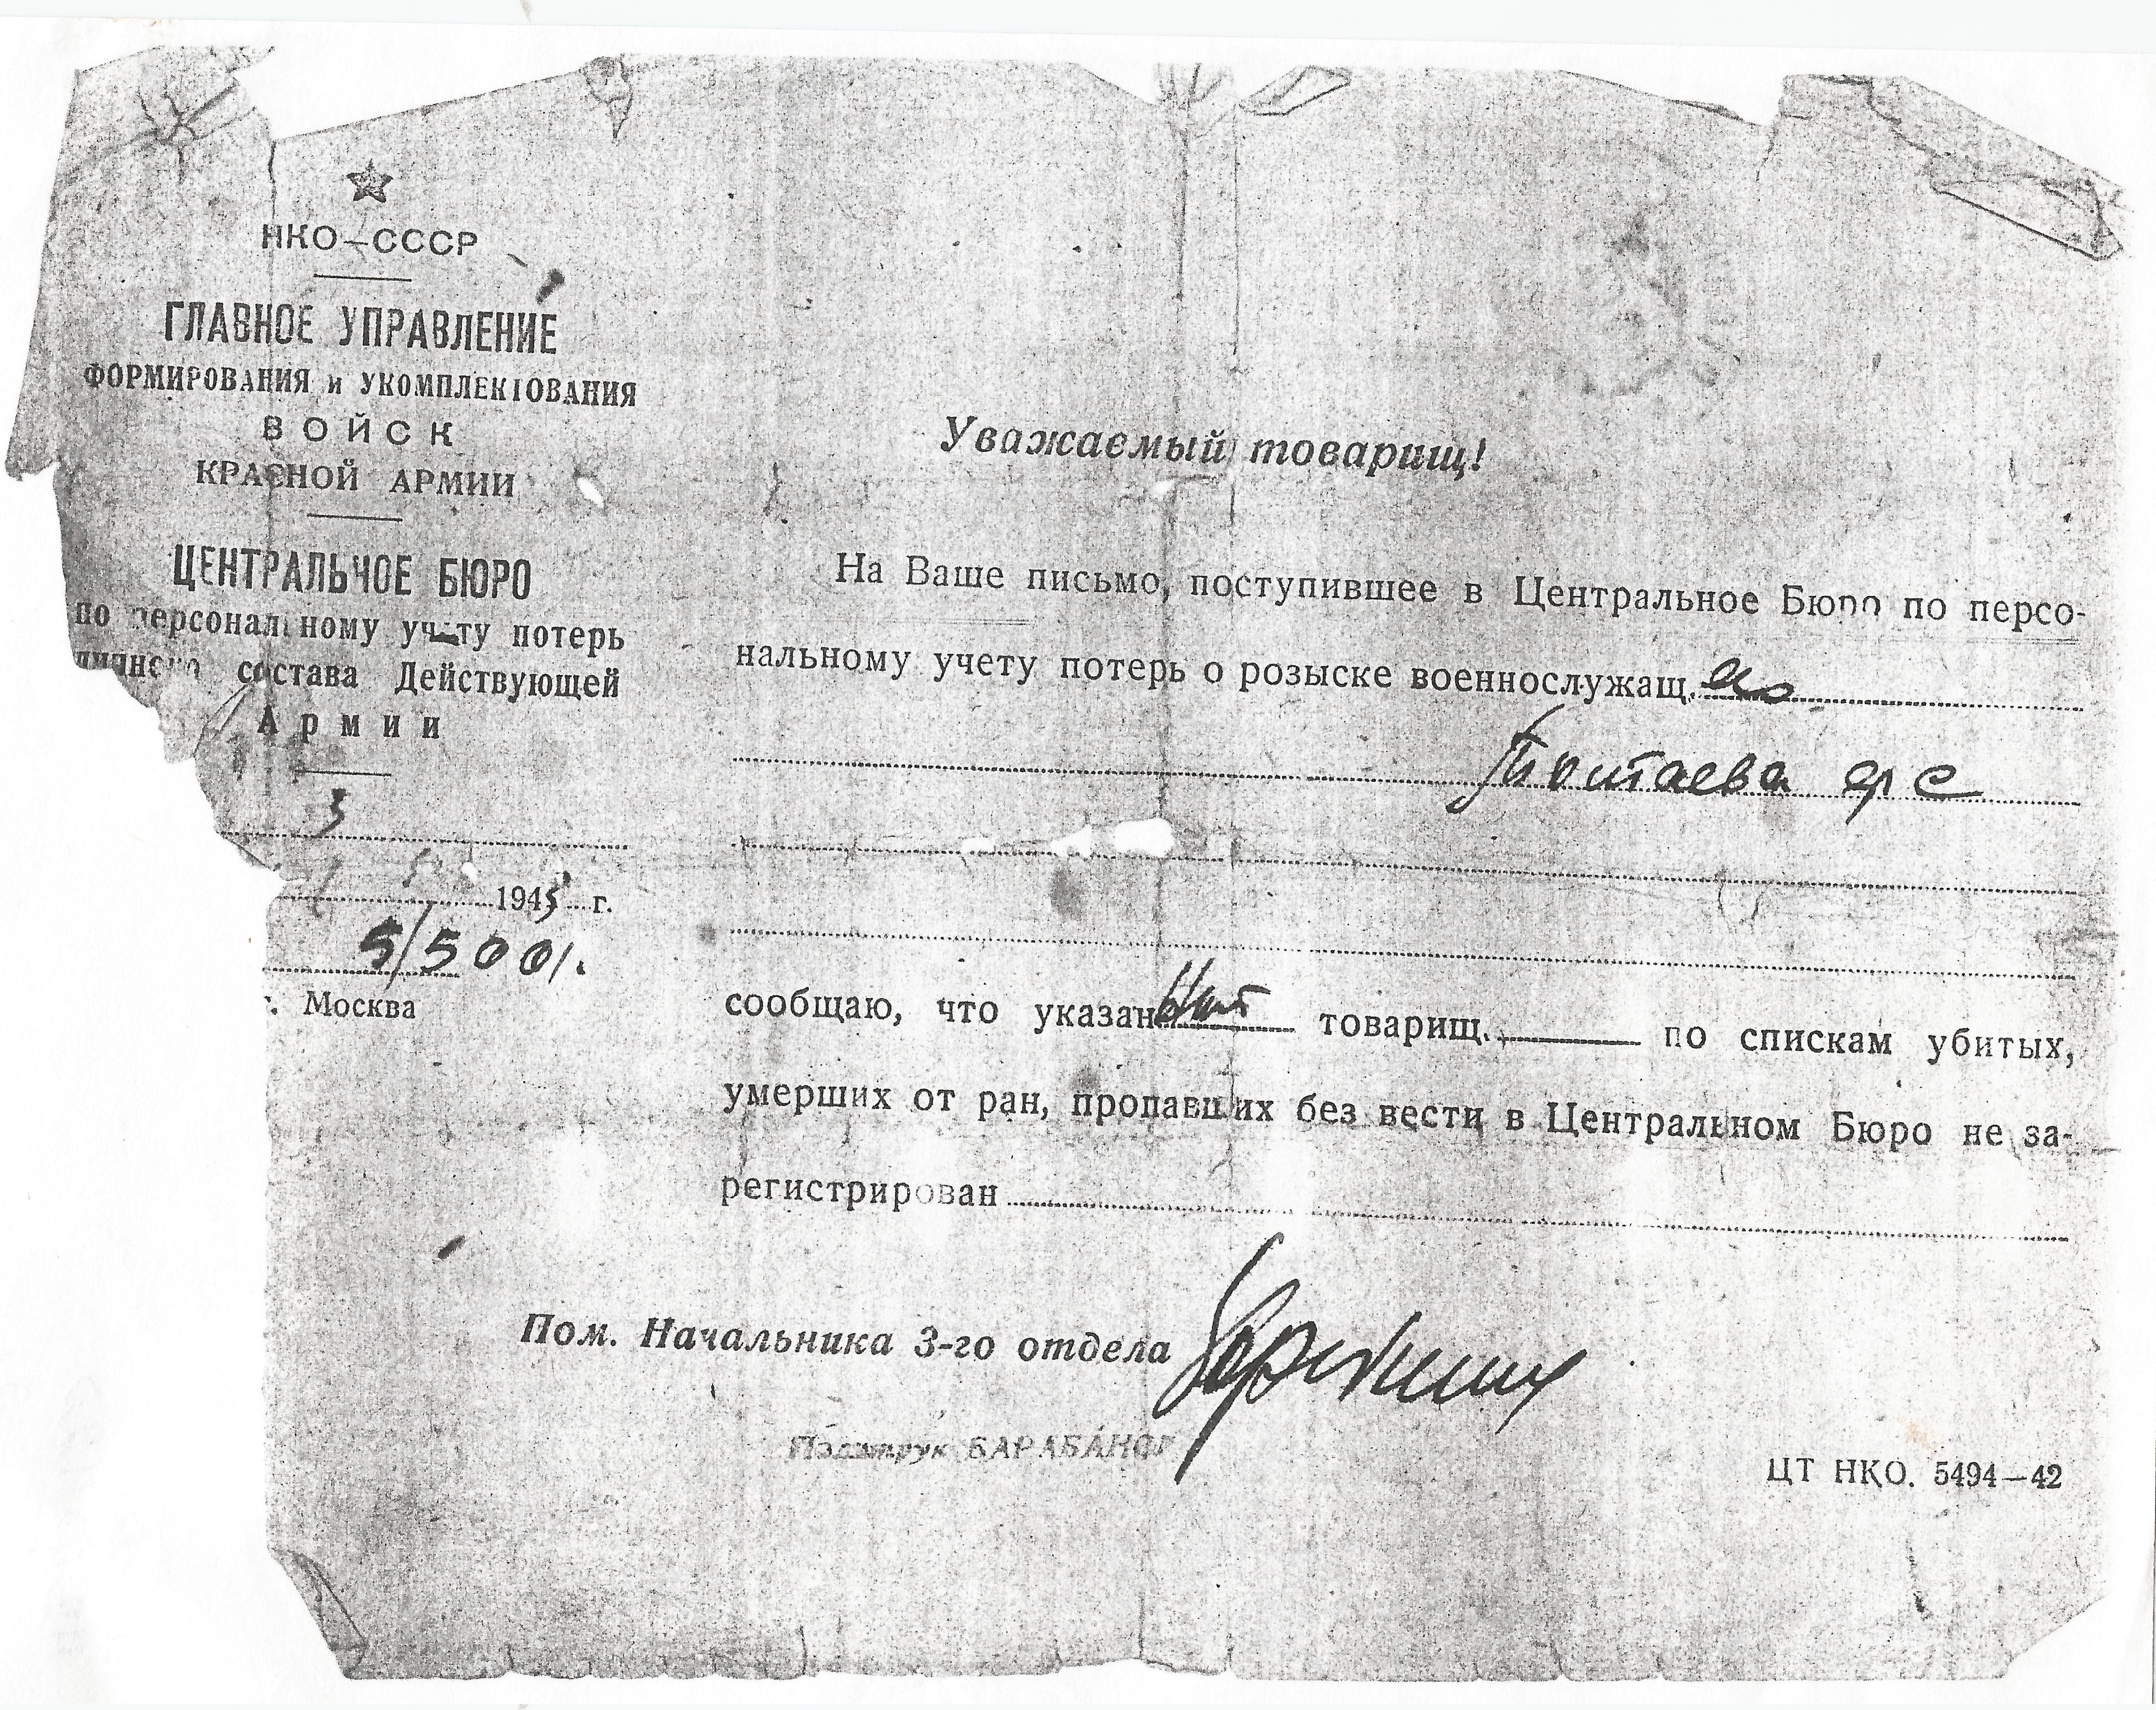 НКО—СССР
ГЛАВНОЕ УПРАВЛЕНИЕ
ФОРМИРОВАНИЯ и УКОМПЛЕКТОВАНИЯ
ВОЙСК
КРАСНОЙ АРМИИ
ЦЕНТРАЛЬНОЕ БЮРО
по персональному учету потерь
состава Действующей
Армии
3
1945 г.
5/5001.
г. Москва
Уважаемый товарищ!
На Ваше письмо, поступившее в Центральное Бюро по персо-
нальному учету потерь о розыске военнослужащ. его
ф с
сообщаю, что указанный товарищ. по спискам убитых,
умерших от ран, пропавших без вести в Центральном Бюро не за-
регистрирован
Пом. Начальника 3-го отдела
БАРАБАНОВ
ЦТ НКО. 5494—42